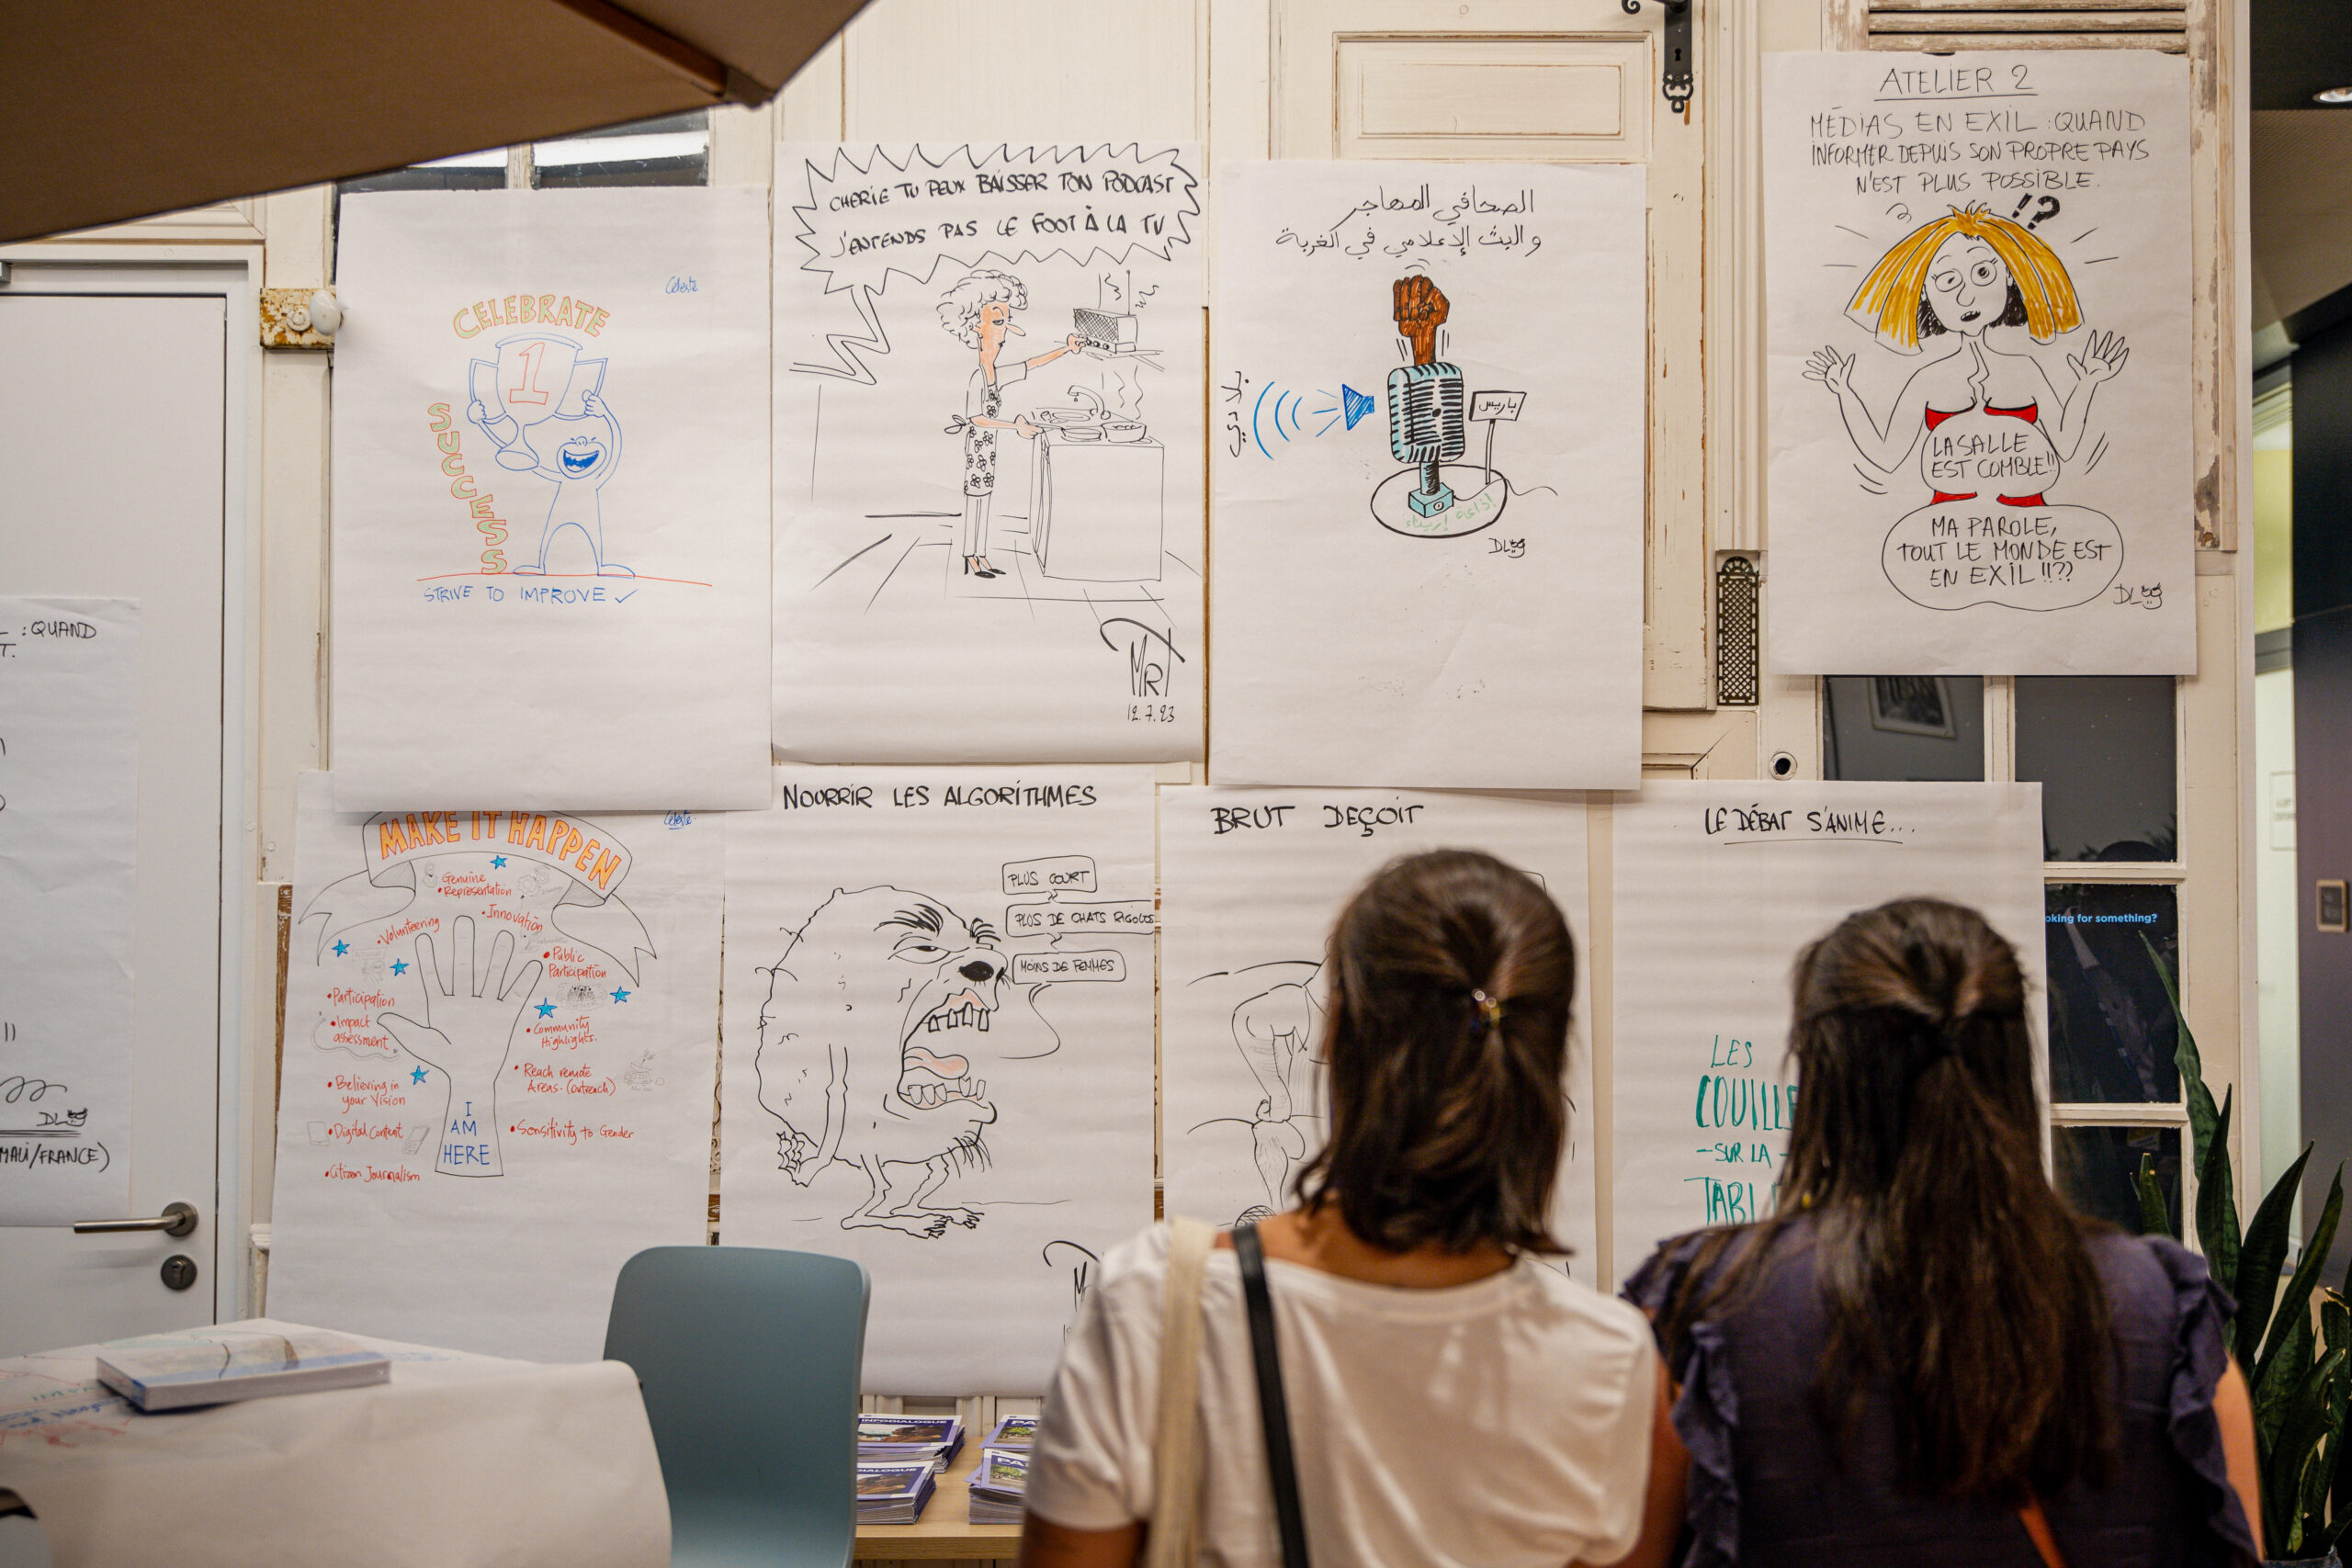 Céleste
CELEBRATE
1
SUCCESS
STRIVE TO IMPROVE
CHERIE TU PEUX BAISSER TON PODCAST
J'ENTENDS PAS LE FOOT À LA TV
MRT
12.7.23
الصحافي المهاجر
والبث الإعلامي في الغربة
بلادي
باريس
إذاعة
DL
ATELIER 2
MÉDIAS EN EXIL : QUAND
INFORMER DEPUIS SON PROPRE PAYS
N'EST PLUS POSSIBLE.
!?
LA SALLE
EST COMBLE!!
MA PAROLE,
TOUT LE MONDE EST
EN EXIL !!??
DL
: QUAND
T.
DL
MALI/FRANCE)
Céleste
MAKE IT HAPPEN
Genuine
• Representation
• Innovation
• Volunteering
• Public
Participation
• Participation
• Impact
assessment
• Community
Highlights.
• Reach remote
Areas. (outreach)
• Believing in
your Vision
• Digital Content
• Sensitivity to Gender
• Citizen Journalism
I
AM
HERE
NOURRIR LES ALGORITHMES
PLUS COURT
PLUS DE CHATS RIGOLOS
MOINS DE FEMMES
BRUT DEÇOIT
LE DÉBAT S'ANIME...
LES
COUILLE
-SUR LA-
TABL
oking for something?
INFODIALOGUE
DIALOGUE
PA
PA